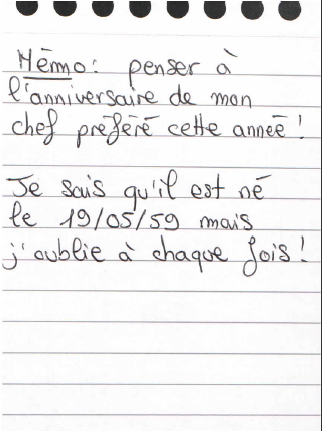 Mémo: penser à
l'anniversaire de mon
chef préféré cette année !
Je sais qu'il est né
le 19/05/59 mais
j'oublie à chaque fois !